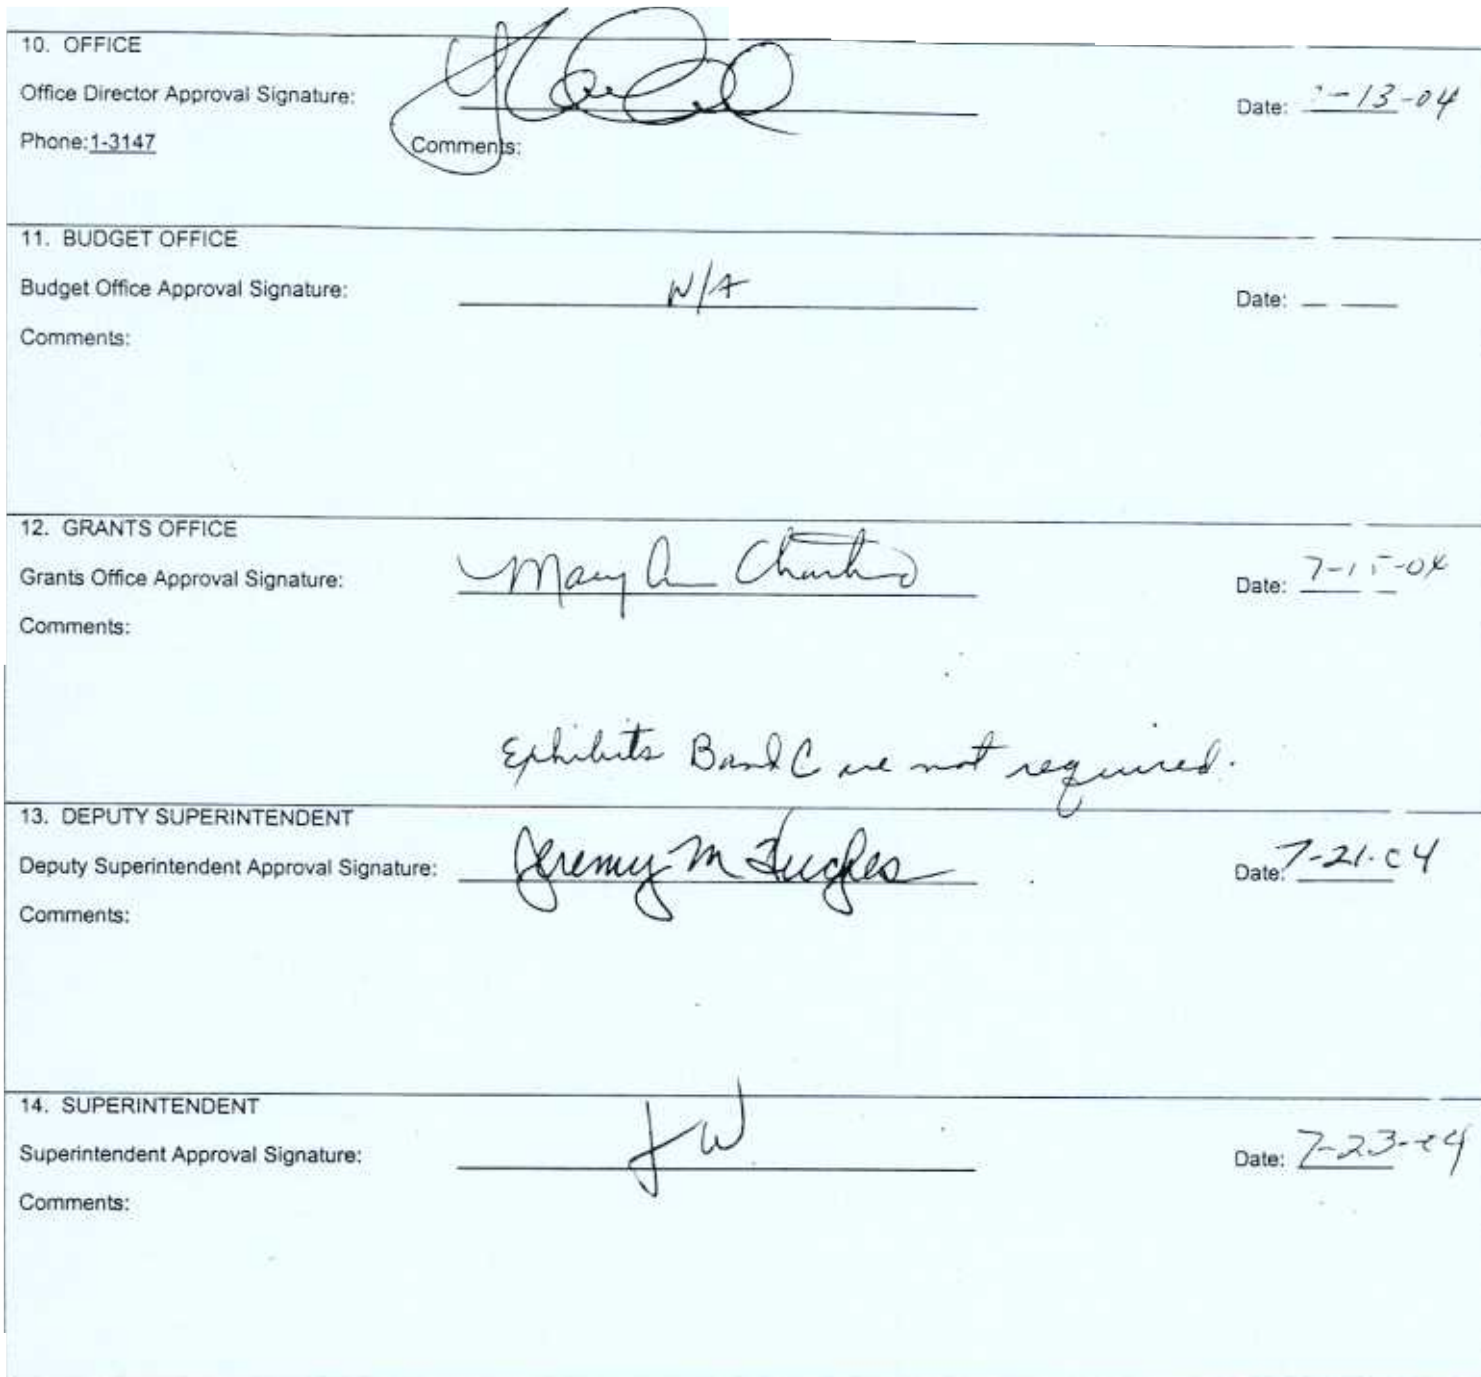 10. OFFICE
Office Director Approval Signature:
Date: -13-04
Phone: 1-3147
Comments:
11. BUDGET OFFICE
Budget Office Approval Signature: N/A
Date:
Comments:
12. GRANTS OFFICE
Grants Office Approval Signature: Mary Ann
Date: 7-15-04
Comments:
Exhibits B and C are not required.
13. DEPUTY SUPERINTENDENT
Deputy Superintendent Approval Signature: Jeremy M Hughes
Date: 7-21-04
Comments:
14. SUPERINTENDENT
Superintendent Approval Signature:
Date: 7-23-04
Comments: